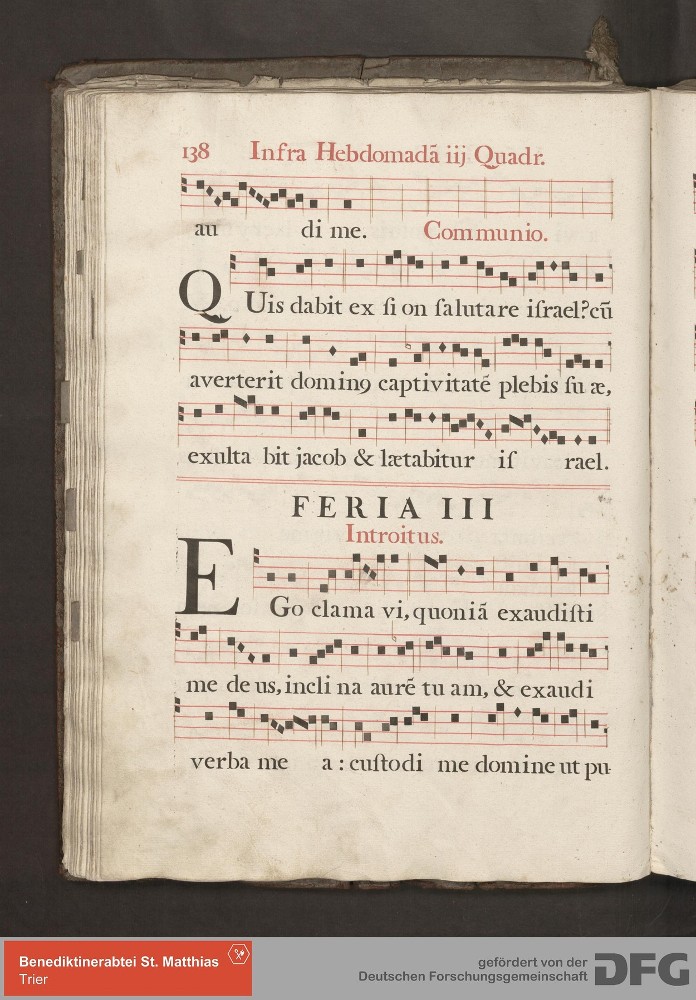 138 Infra Hebdomadā iij Quadr.
au di me. Communio.
QUis dabit ex ſi on ſalutare iſrael? cū
averterit dominꝯ captivitatē plebis ſu æ,
exulta bit jacob & lætabitur iſ rael.
FERIA III
Introitus.
EGo clama vi, quoniā exaudiſti
me de us, incli na aurē tu am, & exaudi
verba me a: cuſtodi me domine ut pu-
Benediktinerabtei St. Matthias
Trier
gefördert von der
Deutschen Forschungsgemeinschaft DFG